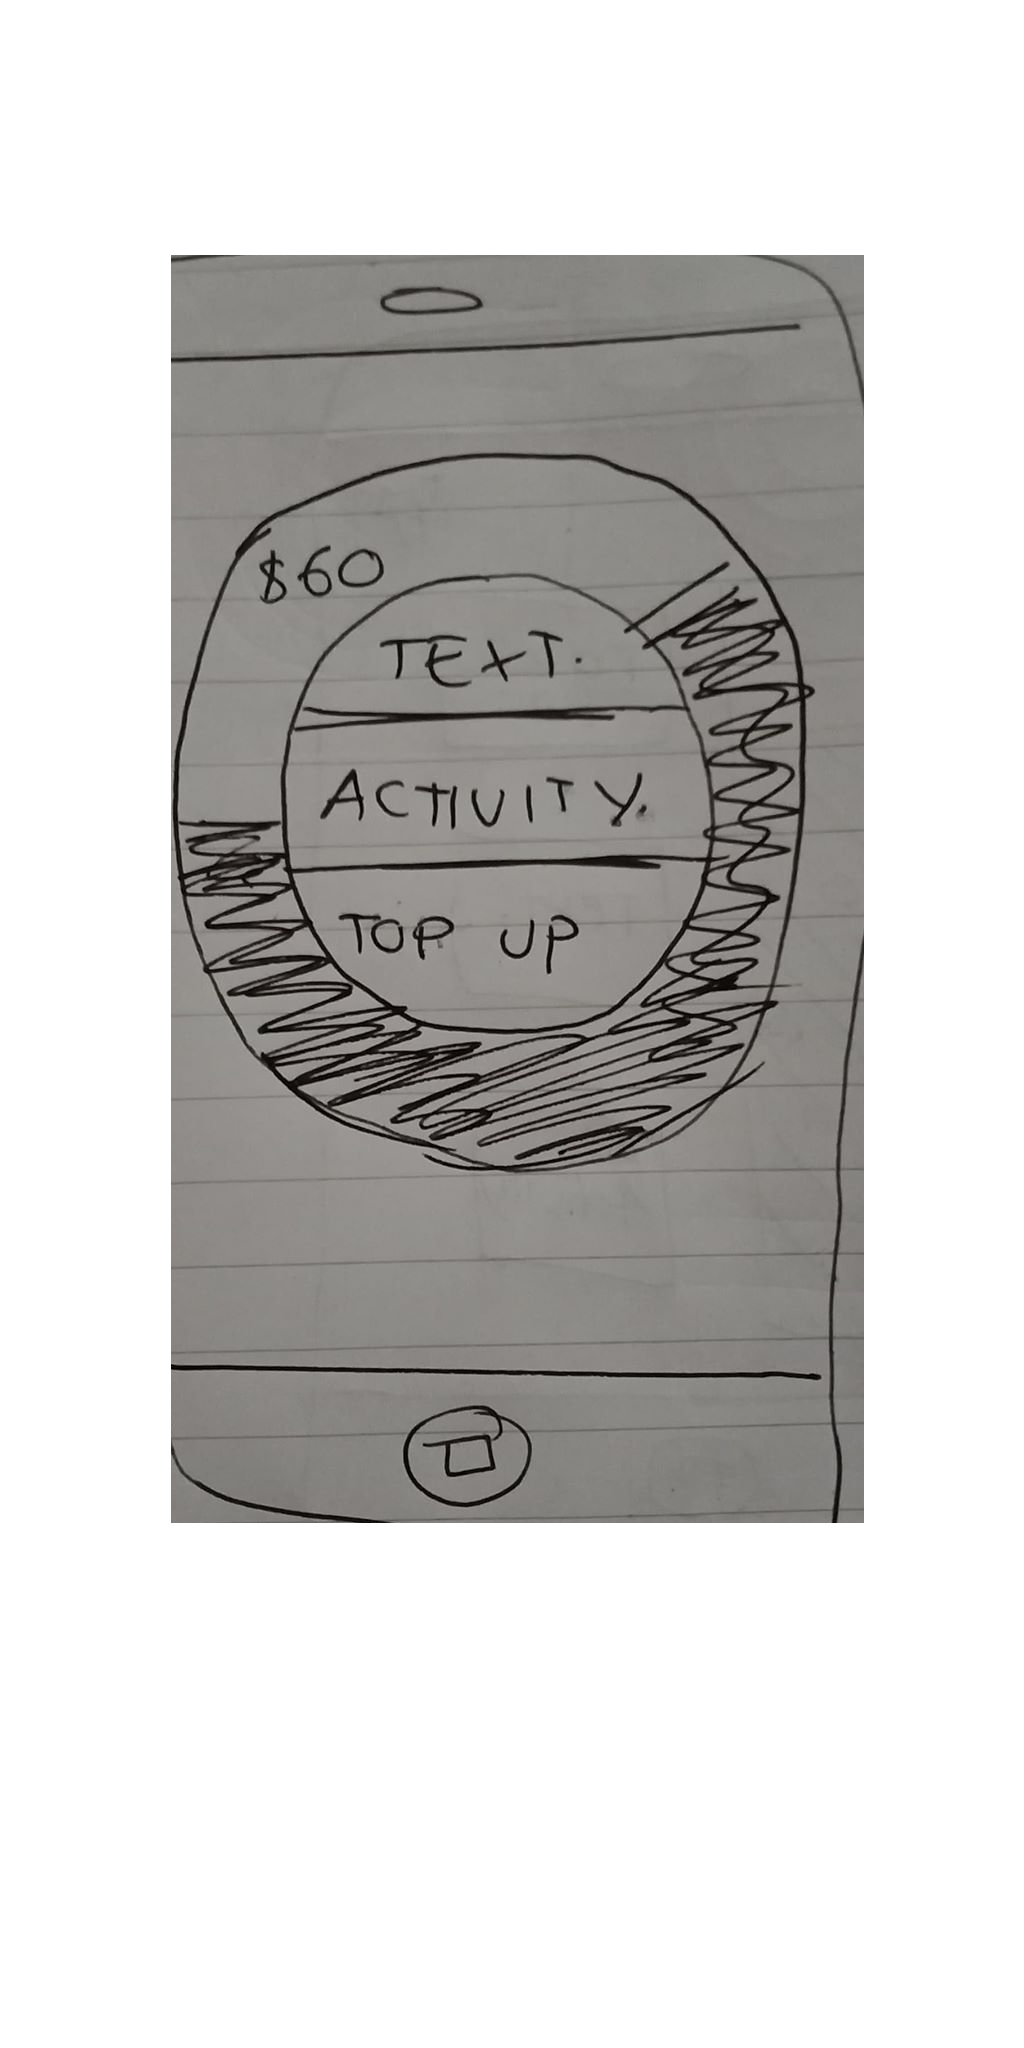 $60
TEXT.
ACTIVITY.
TOP UP